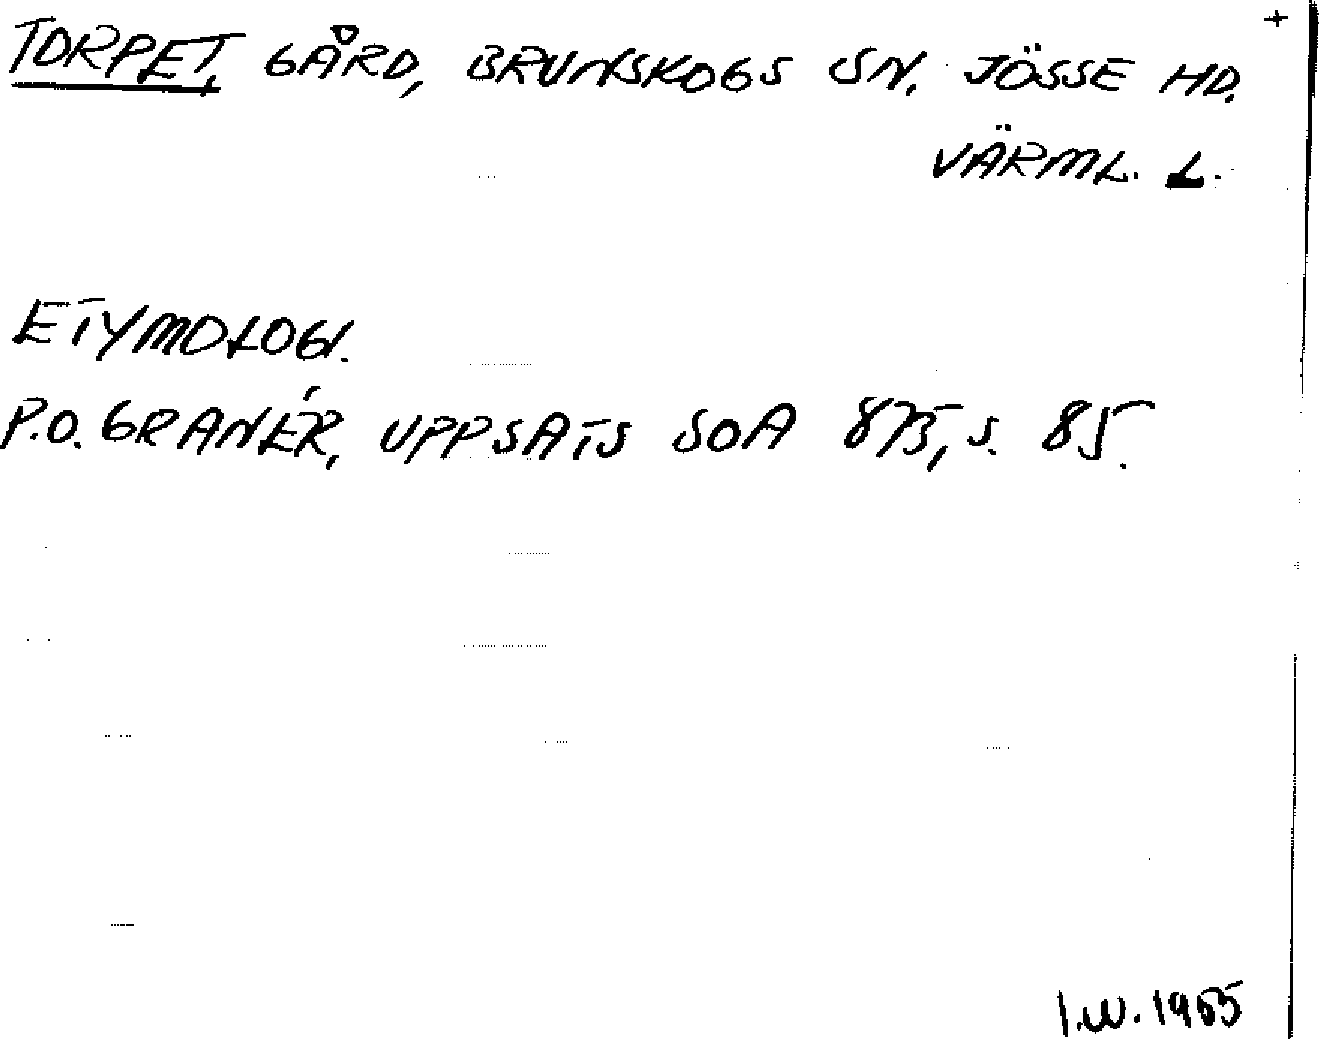 +
TORPET, GÅRD, BRUNSKOGS SN. JÖSSE HD.
VÄRML. L.
ETYMOLOGI.
P.O. GRANÉR, UPPSATS SOA 873, S. 85.
I.W. 1965